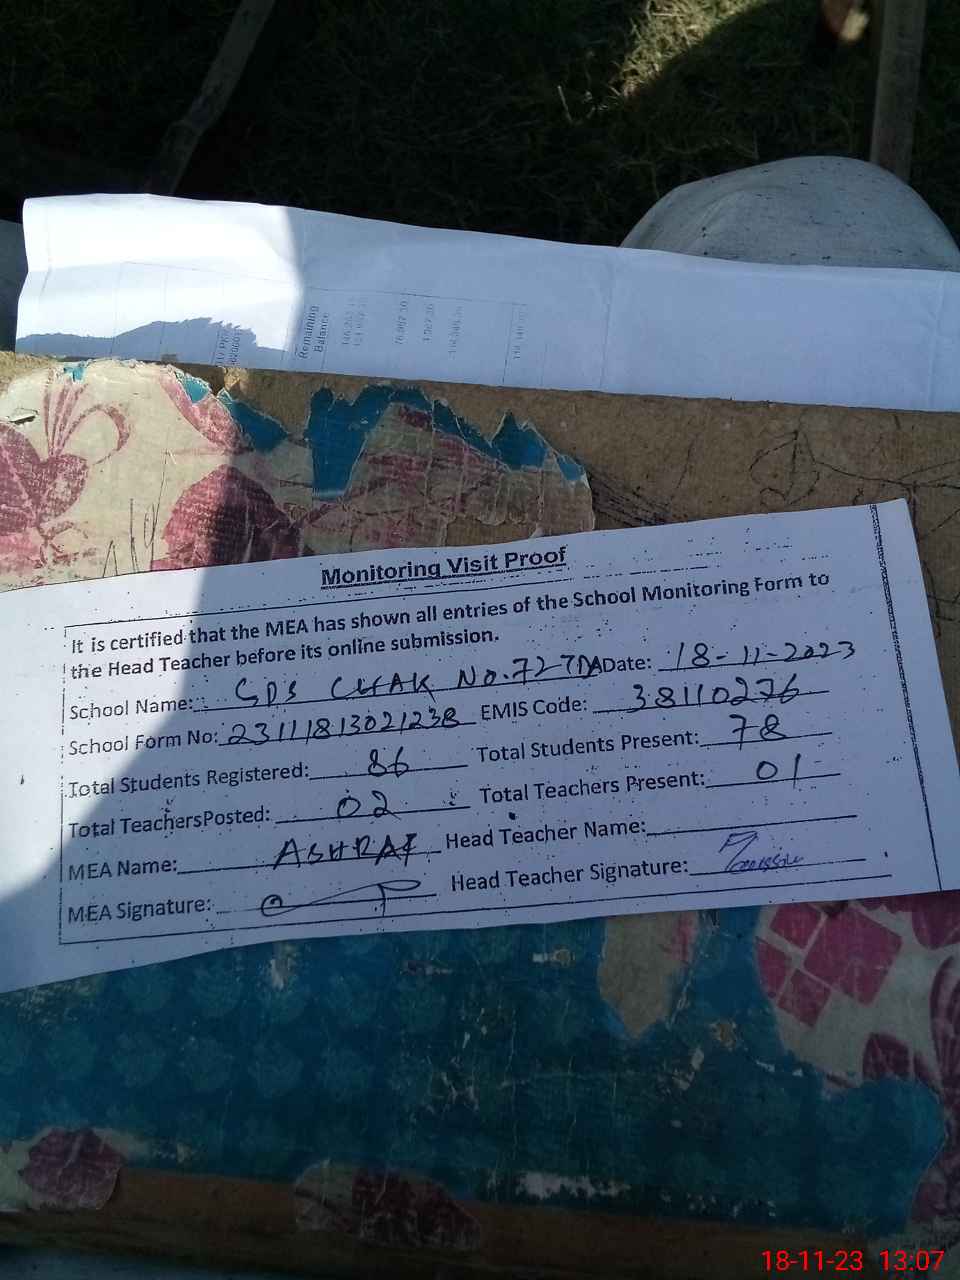 Remaining
Balance
Monitoring Visit Proof
It is certified that the MEA has shown all entries of the School Monitoring Form to
the Head Teacher before its online submission.
School Name: GPS CHAK NO.727DA Date: 18-11-2023
School Form No: 23111813021238 EMIS Code: 38110276
Total Students Registered: 86 Total Students Present: 78
Total TeachersPosted: 02 Total Teachers Present: 01
MEA Name: ASHRAF Head Teacher Name:
MEA Signature: Head Teacher Signature:
18-11-23 13:07